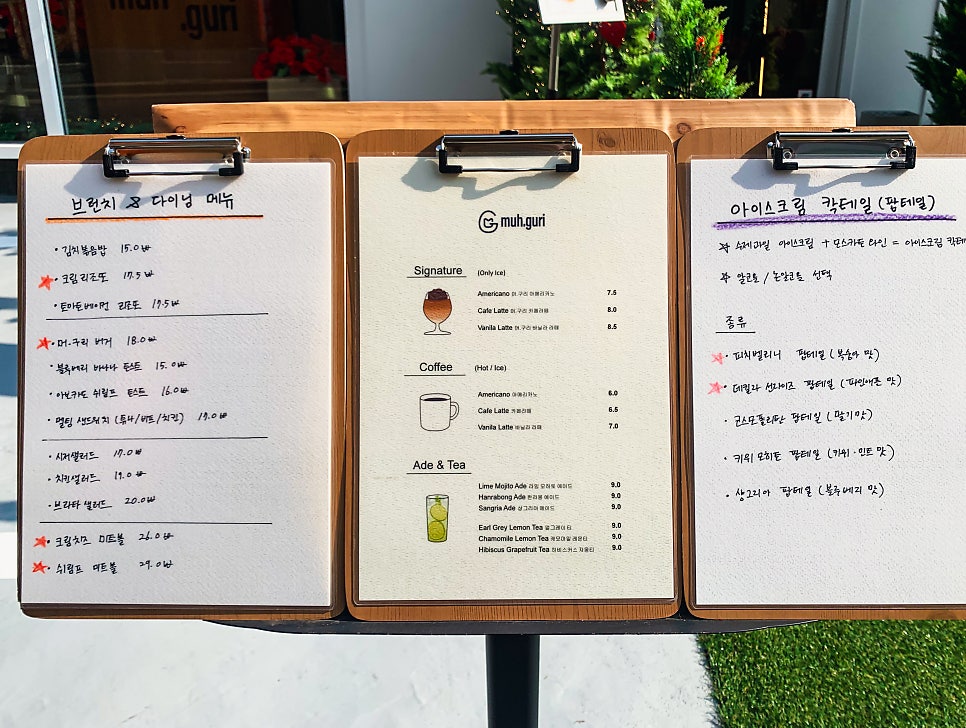 muh
.guri
브런치 & 다이닝 메뉴
· 김치볶음밥 15.0₩
· 크림리조또 17.5₩
· 토마토베이컨 리조또 17.5₩
· 머.구리 버거 18.0₩
· 블루베리 바나나 토스트 15.0₩
· 아보카도 쉬림프 토스트 16.0₩
· 멜팅 샌드위치 (튜나/비프/치킨) 17.0₩
· 시저샐러드 17.0₩
· 치킨샐러드 19.0₩
· 브라타 샐러드 20.0₩
· 크림치즈 미트볼 26.0₩
· 쉬림프 미트볼 29.0₩
muh.guri
Signature (Only Ice)
Americano 머.구리 아메리카노 7.5
Cafe Latte 머.구리 카페라떼 8.0
Vanila Latte 머.구리 바닐라 라떼 8.5
Coffee (Hot / Ice)
Americano 아메리카노 6.0
Cafe Latte 카페라떼 6.5
Vanila Latte 바닐라 라떼 7.0
Ade & Tea
Lime Mojito Ade 라임 모히또 에이드 9.0
Hanrabong Ade 한라봉 에이드 9.0
Sangria Ade 샹그리아 에이드 9.0
Earl Grey Lemon Tea 얼그레이 티 9.0
Chamomile Lemon Tea 캐모마일 레몬티 9.0
Hibiscus Grapefruit Tea 히비스커스 자몽티 9.0
아이스크림 칵테일 (팝테일)
수제과일 아이스크림 + 모스카토 와인 = 아이스크림 칵테
알코올 / 논알코올 선택
종류
· 피치벨리니 팝테일 (복숭아 맛)
· 데킬라 선라이즈 팝테일 (파인애플 맛)
· 코스모폴리탄 팝테일 (딸기 맛)
· 키위 모히또 팝테일 (키위·민트 맛)
· 샹그리아 팝테일 (블루베리 맛)